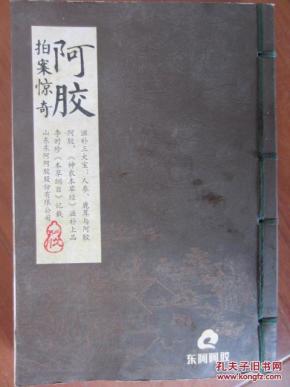 阿胶
拍案惊奇
滋补三大宝：人参、鹿茸与阿胶
阿胶，《神农本草经》滋补上品
李时珍《本草纲目》记载
山东东阿阿胶股份有限公司
东阿阿胶
孔夫子旧书网